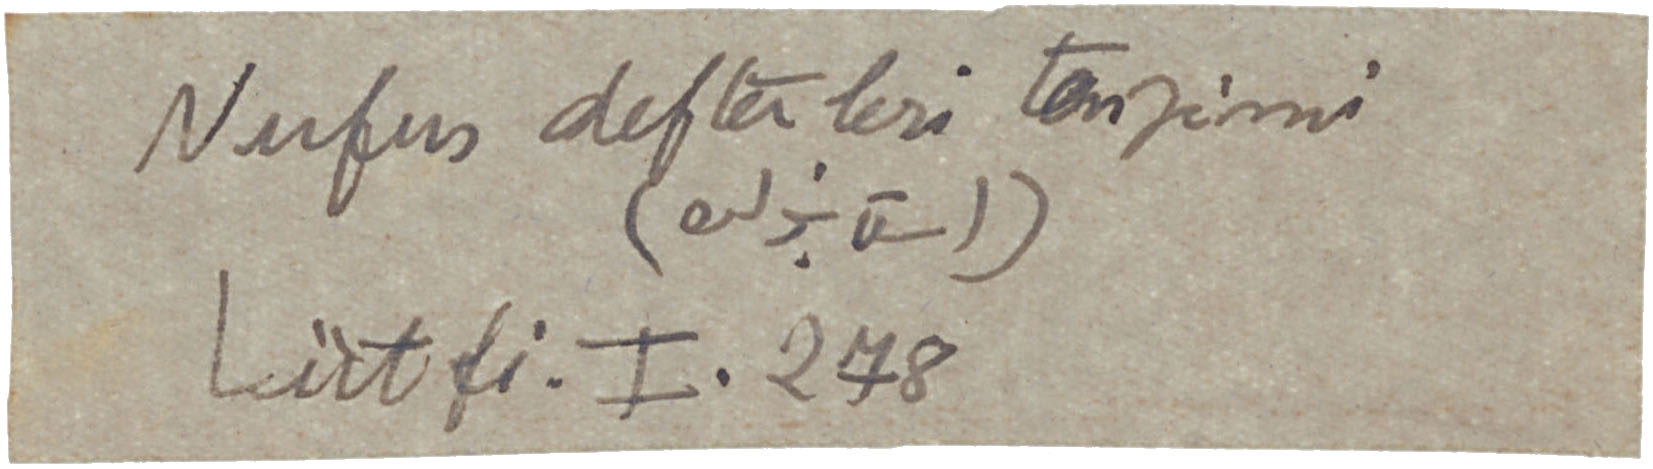 Nufus defterleri tanzimi
Lütfi. I. 278